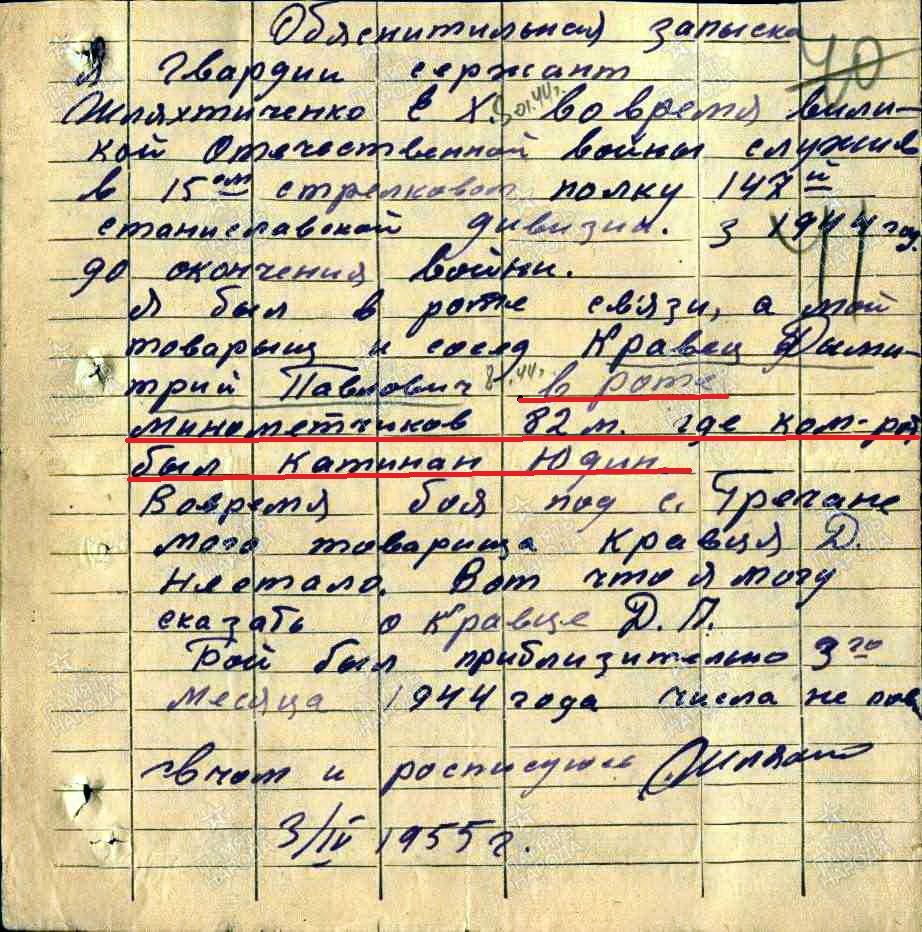 Обяснитильная запыска
Я Гвардии сержант
Шляхтиченко Е Х. во время вили-
кой Отечественной войны служив
в 15ом стрелковом полку 147й
станиславской дивизии. З 1944 год.
до окончения войни.
Я был в роте связи, а мой
товарыщ и сосед Кравец Дыми-
трий Павлович в роте
минометчиков 82м. где ком-рот
был капинан Юдин
Вовремя боя под с. Гречане
мого товарища Кравця Д.
Нестало. Вот что я могу
сказать о Кравце Д. П.
Бой был приблизительно 3го
месяца 1944 года числа не пом
вчом и росписуюс
3/IV 1955 г.
40